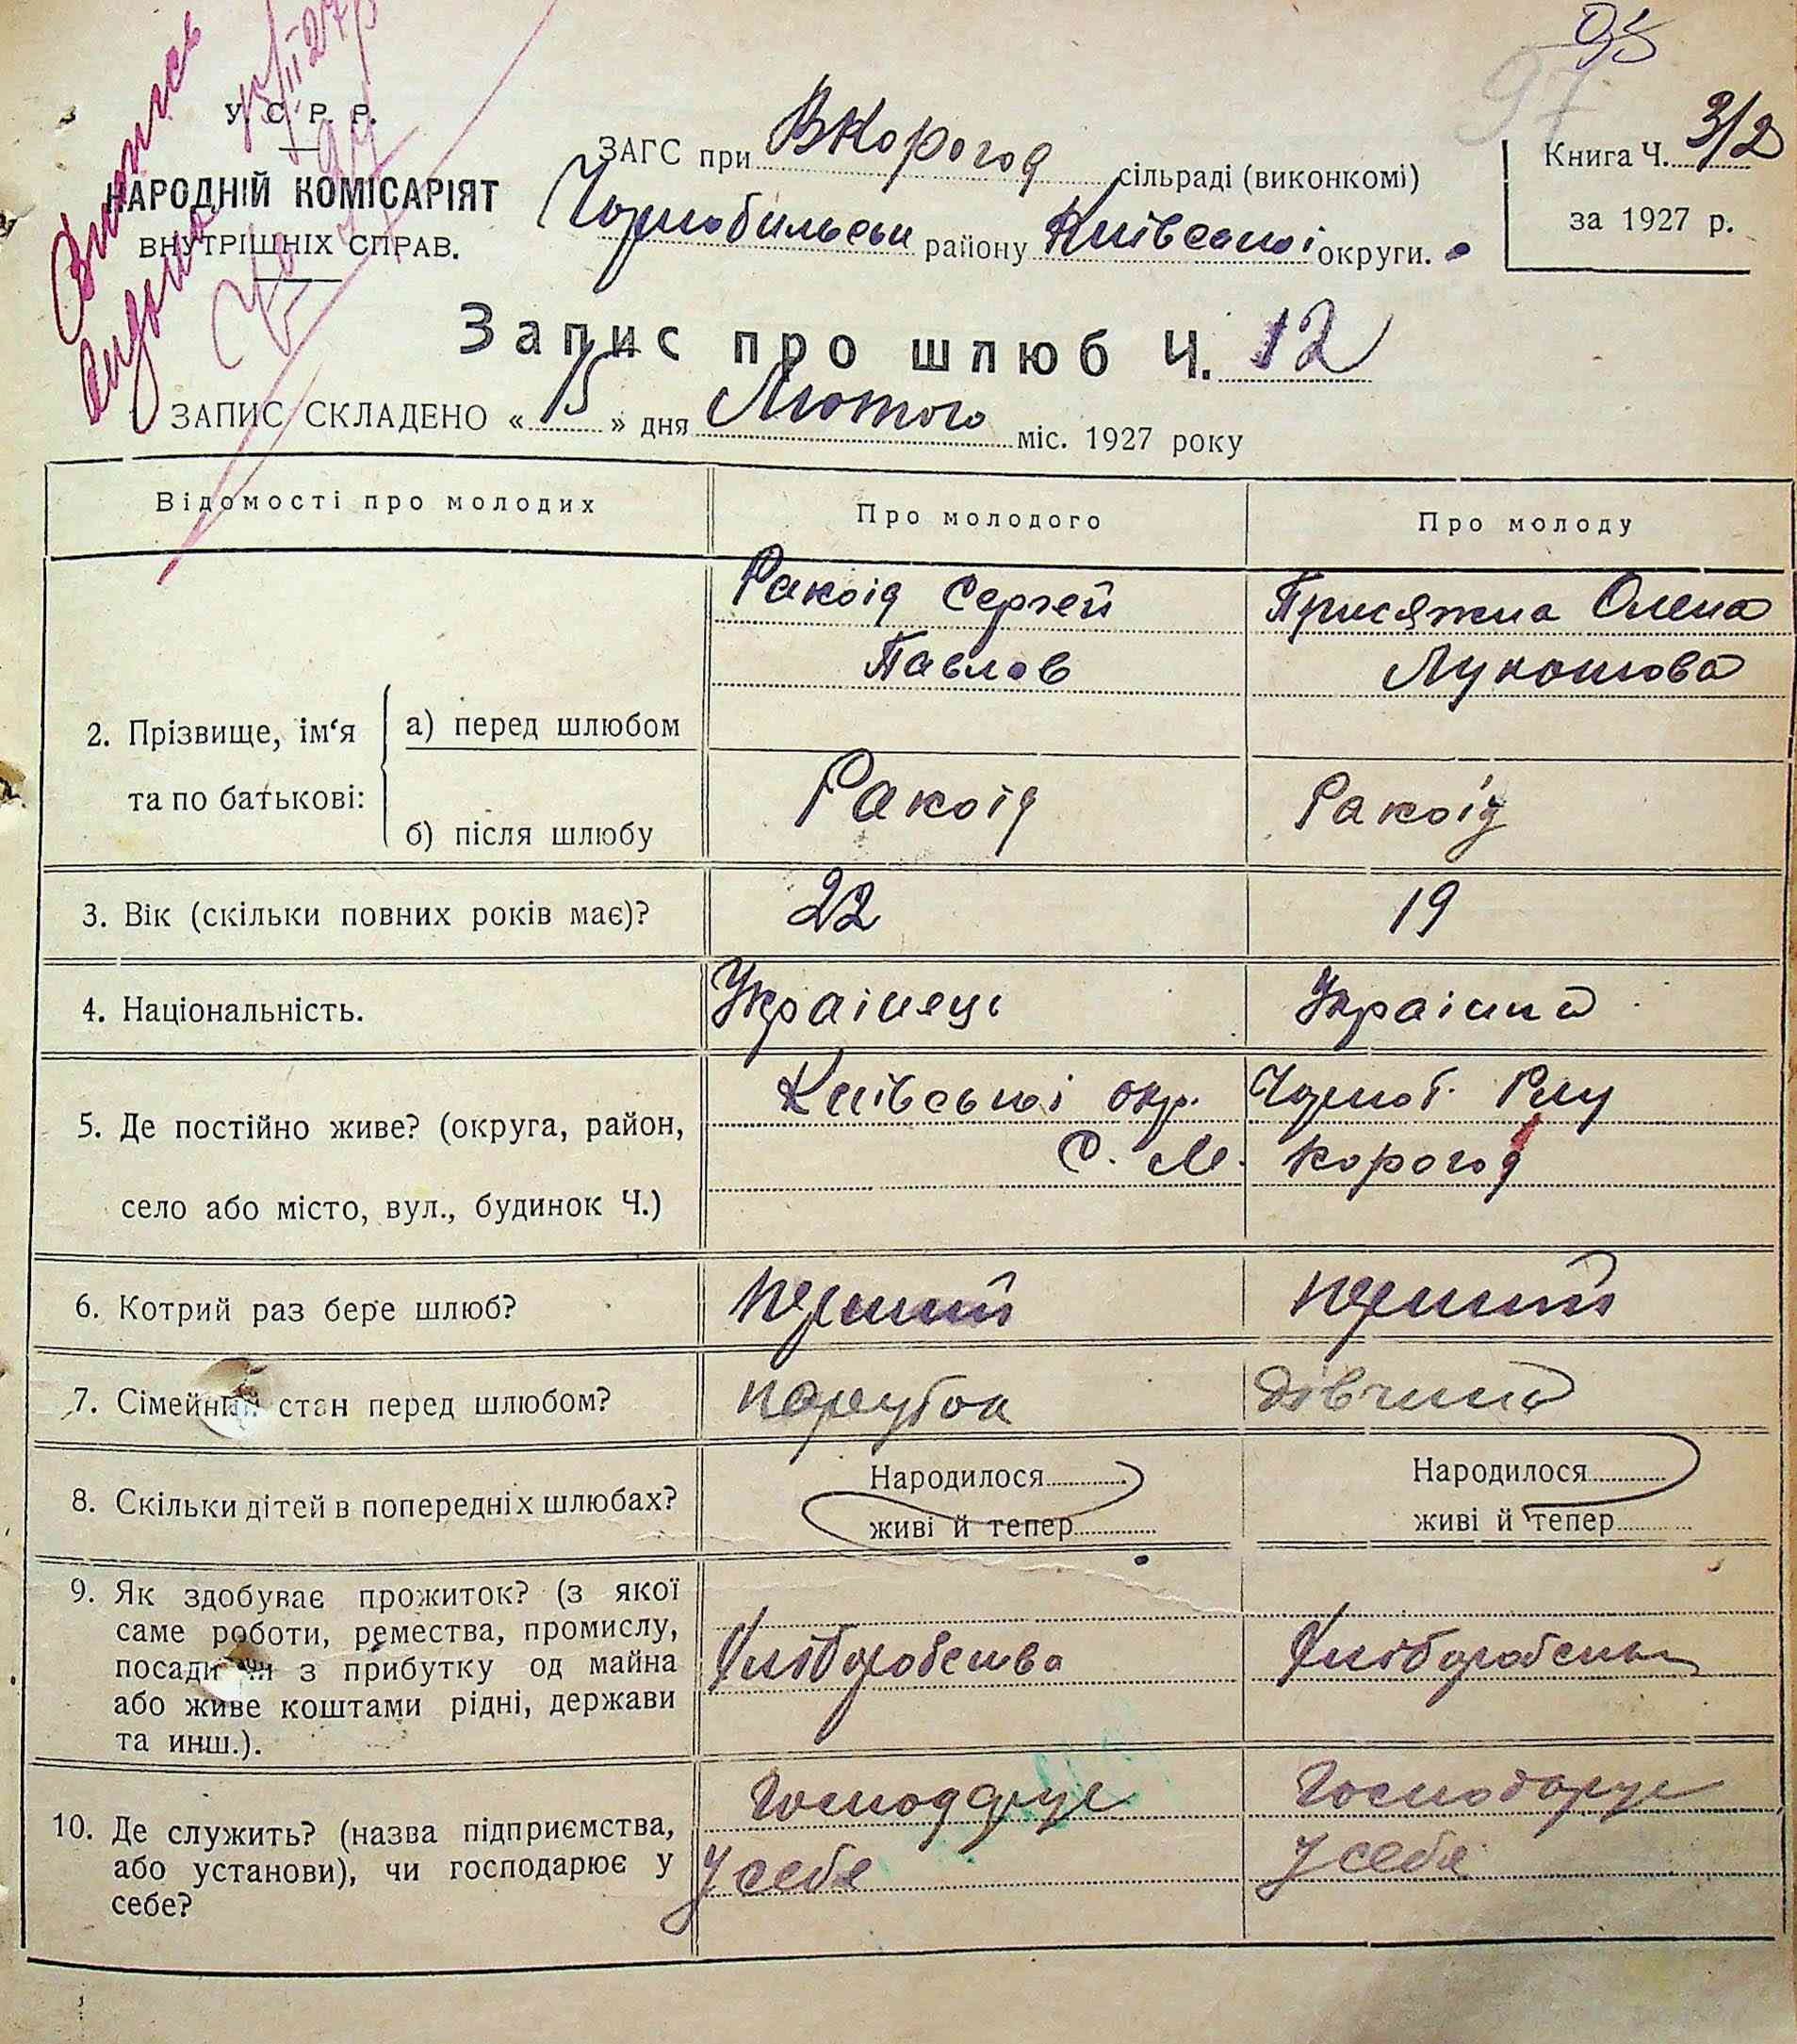 95
97
Випись
У. С. Р. Р.
НАРОДНІЙ КОМІСАРІЯТ
ВНУТРІШНІХ СПРАВ.
ЗАГС при ВКорогод сільраді (виконкомі)
Чорнобильськ району Київської округи.
Книга Ч. 3/2
за 1927 р.
Запис про шлюб Ч. 12
ЗАПИС СКЛАДЕНО « 15 » дня Лютого міс. 1927 року
Відомості про молодих Про молодого Про молоду
Ракоід Сергей Присяжна Олена
Павлов Лукашова
2. Прізвище, ім‘я а) перед шлюбом
та по батькові: Ракоїд Ракоїд
б) після шлюбу
3. Вік (скільки повних років має)? 22 19
4. Національність. Українець Україна
5. Де постійно живе? (округа, район, Київської окр. Чорноб. Р-ну
С. М. Корогод
село або місто, вул., будинок Ч.)
6. Котрий раз бере шлюб? перший перший
7. Сімейний стан перед шлюбом? парубок дівчина
8. Скільки дітей в попередніх шлюбах? Народилося Народилося
живі й тепер живі й тепер
9. Як здобуває прожиток? (з якої
саме роботи, ремества, промислу,
посади чи з прибутку од майна Хліборобства Хліборобства
або живе коштами рідні, держави
та инш.).
Господарує Господарує
10. Де служить? (назва підприємства,
або установи), чи господарює у У себе У себе
себе?